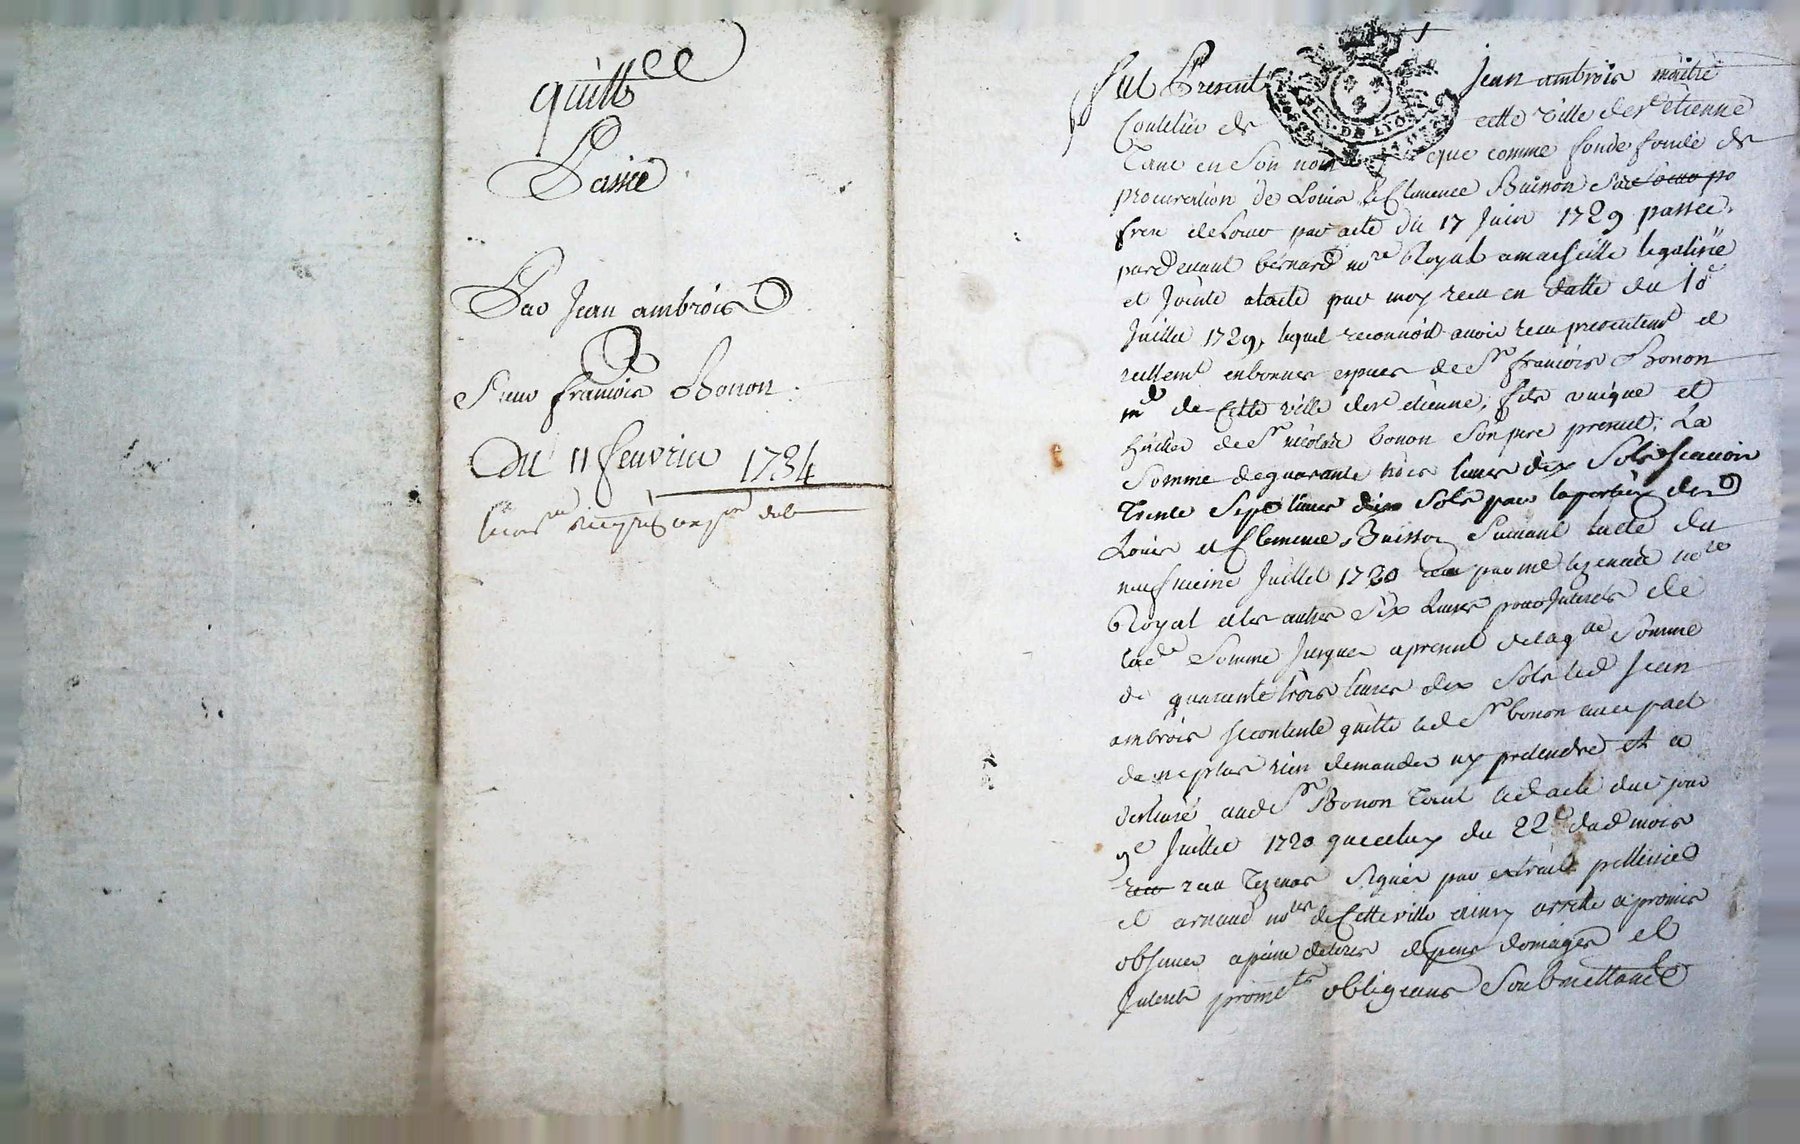 quitt^ce
Passée
Par Jean ambrois
a
Sieur francois Bonon
Du 11 feuvrier 1734
fut Present Jean ambrois maitre
GEN. DE LYON
Coutelier de cette ville de s^t étienne
Tant en son nom que comme fondé de
procuration de Louis & Clemence Buisson
frere et soeur par acte du 17 Juin 1729 passée
pardevant bérnard no^re Royal a marseille legalisée
et Jointe a lacte par moy receu en datte du 18^e
Juillet 1729, lequel reconnoit avoir receu presentem^t et
réellem^t en bonnes espuces de S^r francois Bonon
m^d de Cette ville de s^t étienne, fils unique et
héritier de S^r nicolas bonon son pere present, La
Somme de quarante trois livres dix Sols scavoir
Trente Sept livres dix Sols pour la portion desd
Louis et Clemence Buisson Suivant lacte du
neufvieme Juillet 1720 receu par me tezenas no^re
Royal et les autres Six Livres pour Interets de
lad^e Somme Jusques a present de laq^lle Somme
de quarante trois livres dix Sols led Jean
ambrois se contente quitte led S^r bonon avec pact
de ne plus rien demander ny prétendre et a
deslivré aud S^r Bonon Tant led acte dud jour
9^e Juillet 1720 que celuy du 22^e dud mois
receu Tezenas Signés par extrait pellissier
et arnaud no^res de Cette ville ainsy arrêté a promis
observer a peine de tous depens domages et
Interets prome^ts obligeans Soubmettans